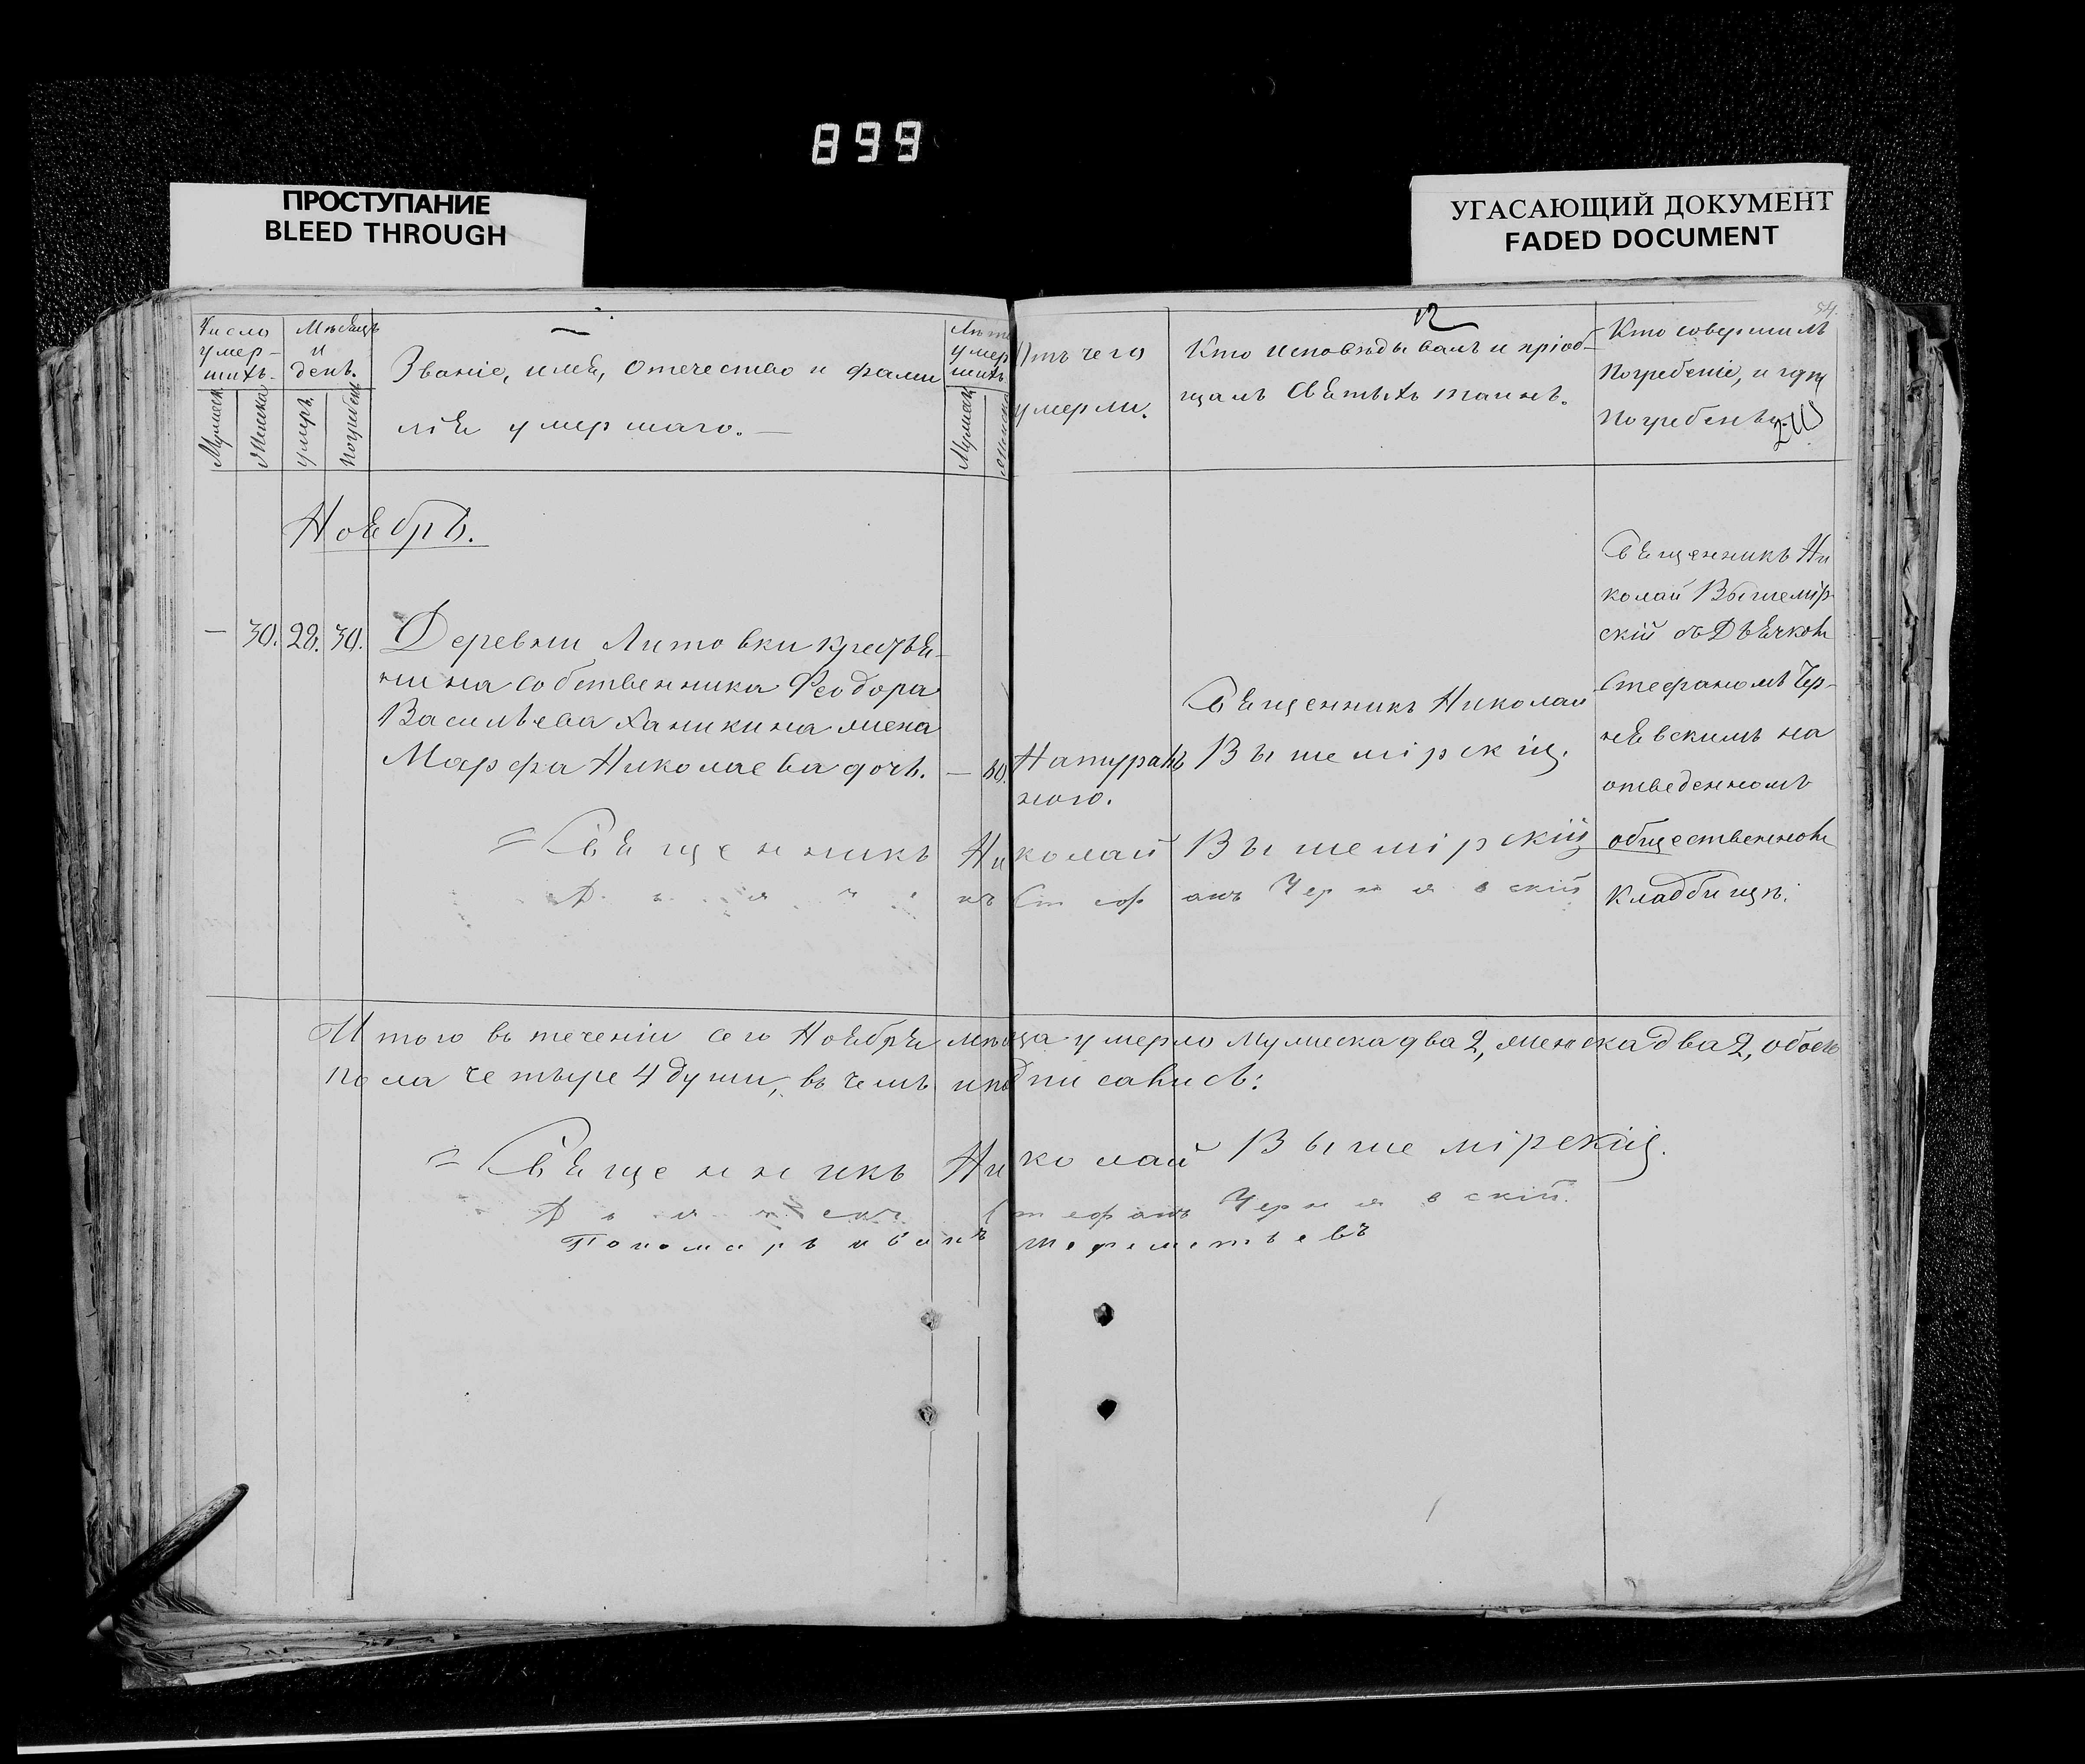 899
ПРОСТУПАНИЕ
BLEED THROUGH
УГАСАЮЩИЙ ДОКУМЕНТ
FADED DOCUMENT
54.
Число
умер-
шихъ.
Мужеска
Женска
Мѣсяцъ
и
день.
умеръ.
погребенъ
Званіе, имя, отечество и фами
лія умершаго. —
Лѣта
умер
шихъ
Мужеск
Отъ чего
умерли.
Кто исповѣдывалъ и пріоб-
щалъ Святыхъ таинъ.
Кто совершилъ
погребеніе, и гдѣ
погребены.
Ноябрь.
— 30. 28. 30. Деревни Литовки крестья-
нина собственника Феодора
Васильева Ханикина жена
Марфа Николаева дочь.
— 80.
Натураль
ного.
Священникъ Николай
Вышемірскій.
Священникъ Ни
колай Вышемір
скій съ Дьячкомъ
Стефаномъ Чер-
нявскимъ на
отведенномъ
общественномъ
кладбищѣ.
= Священникъ Николай Вышемірскій
Дьячекъ Стефанъ Чернявскій
Итого въ теченіи сего Ноября мѣсяца умерло мужеска два 2, женска два 2, обоего
пола четыре 4 души, въ чемъ и подписались:
= Священникъ Николай Вышемірскій.
Дьячекъ Стефанъ Чернявскій.
Пономарь Иванъ Шереметьевъ